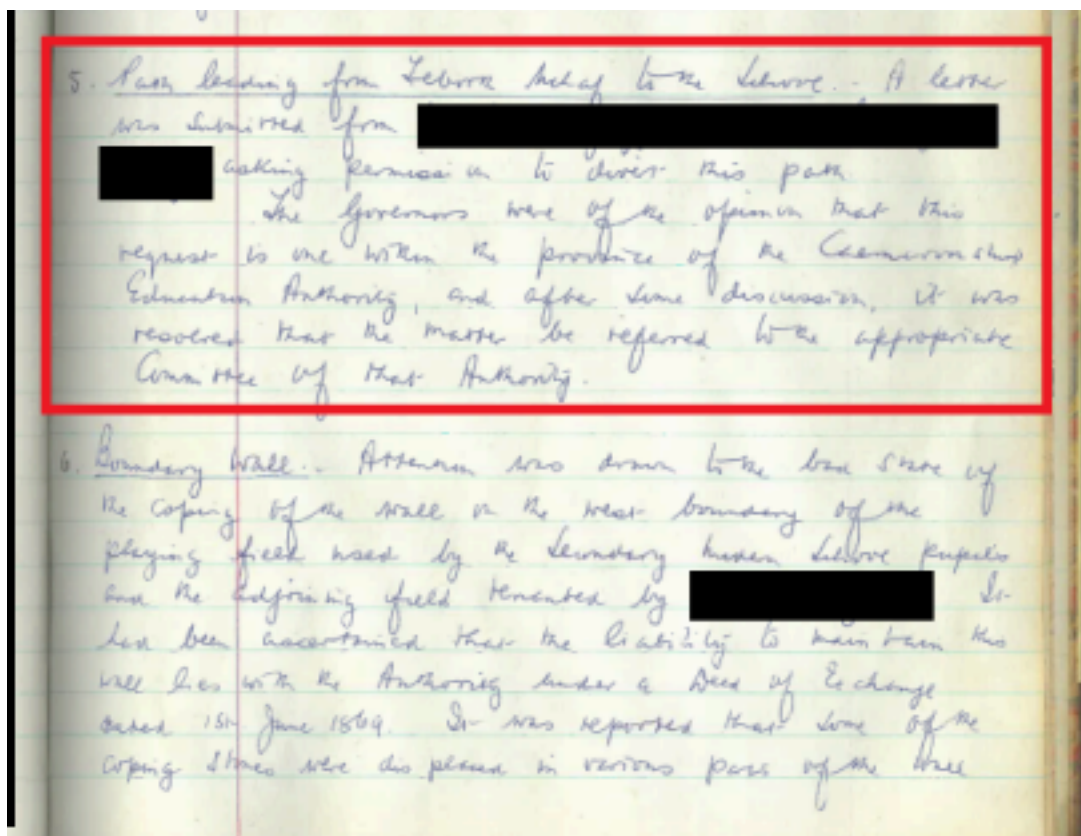 5. Path leading from Isaf to the School. - A letter
was submitted from
asking permission to divert this path
The Governors were of the opinion that this
request is one within the province of the Caernarvonshire
Education Authority, and after some discussion, it was
resolved that the matter be referred to the appropriate
Committee of that Authority.
6. Boundary Wall. - Attention was drawn to the bad state of
the coping of the wall on the west boundary of the
playing field used by the Secondary Modern School pupils
and the adjoining field tenanted by It
had been ascertained that the liability to maintain this
wall lies with the Authority under a Deed of Exchange
dated 1st June 1869. It was reported that some of the
coping stones were displaced in various parts of the wall